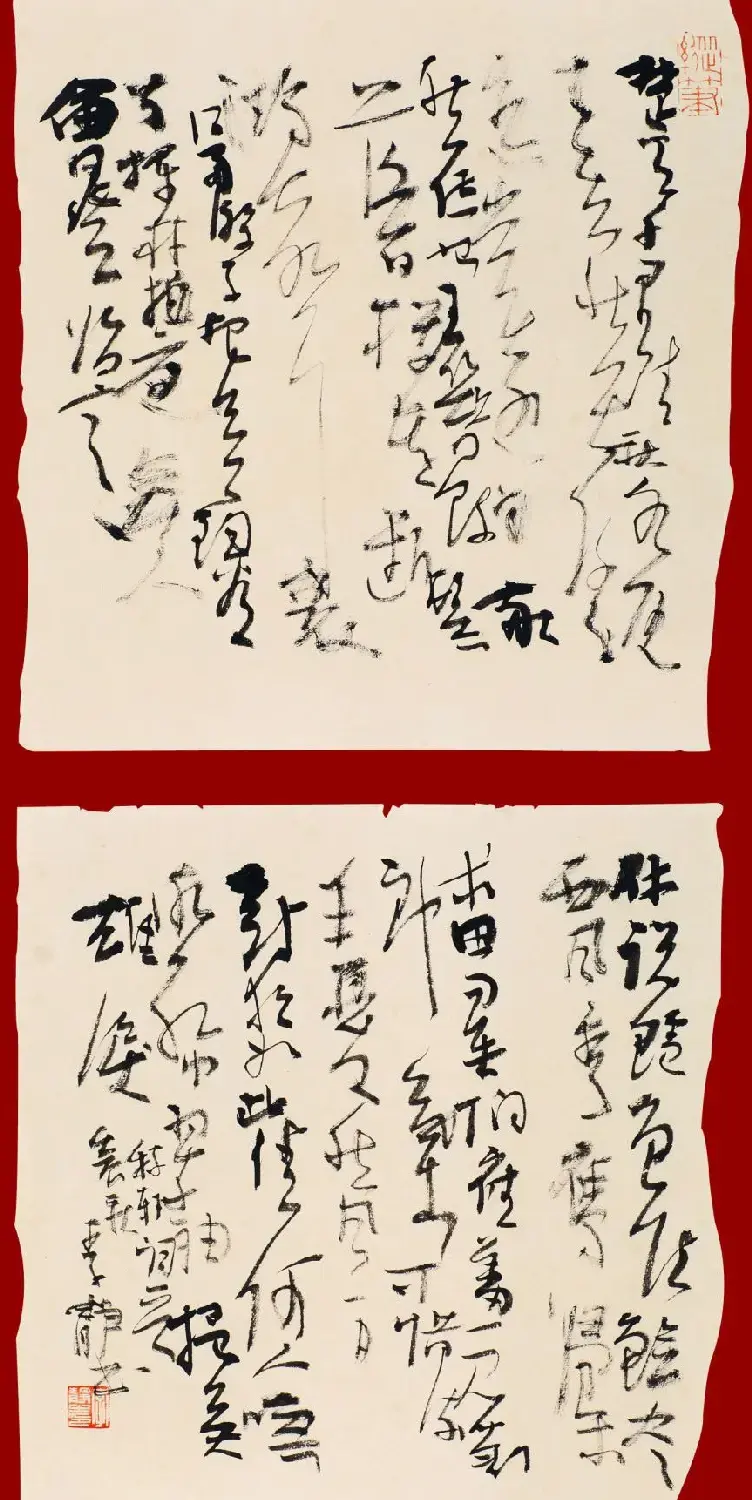 楚天千里清秋水随
天去秋无际
遥岑远目献
愁供恨玉簪螺髻
落日楼头断
鸿声里
江南游子把吴钩看
了栏干拍遍无人
会登临意
休说鲈鱼堪脍尽
西风季鹰归未
求田问舍怕应羞见刘
郎才气可惜流
年忧愁风雨
树犹如此倩何人唤
取红巾翠袖揾英
雄泪
稼轩词
李静书